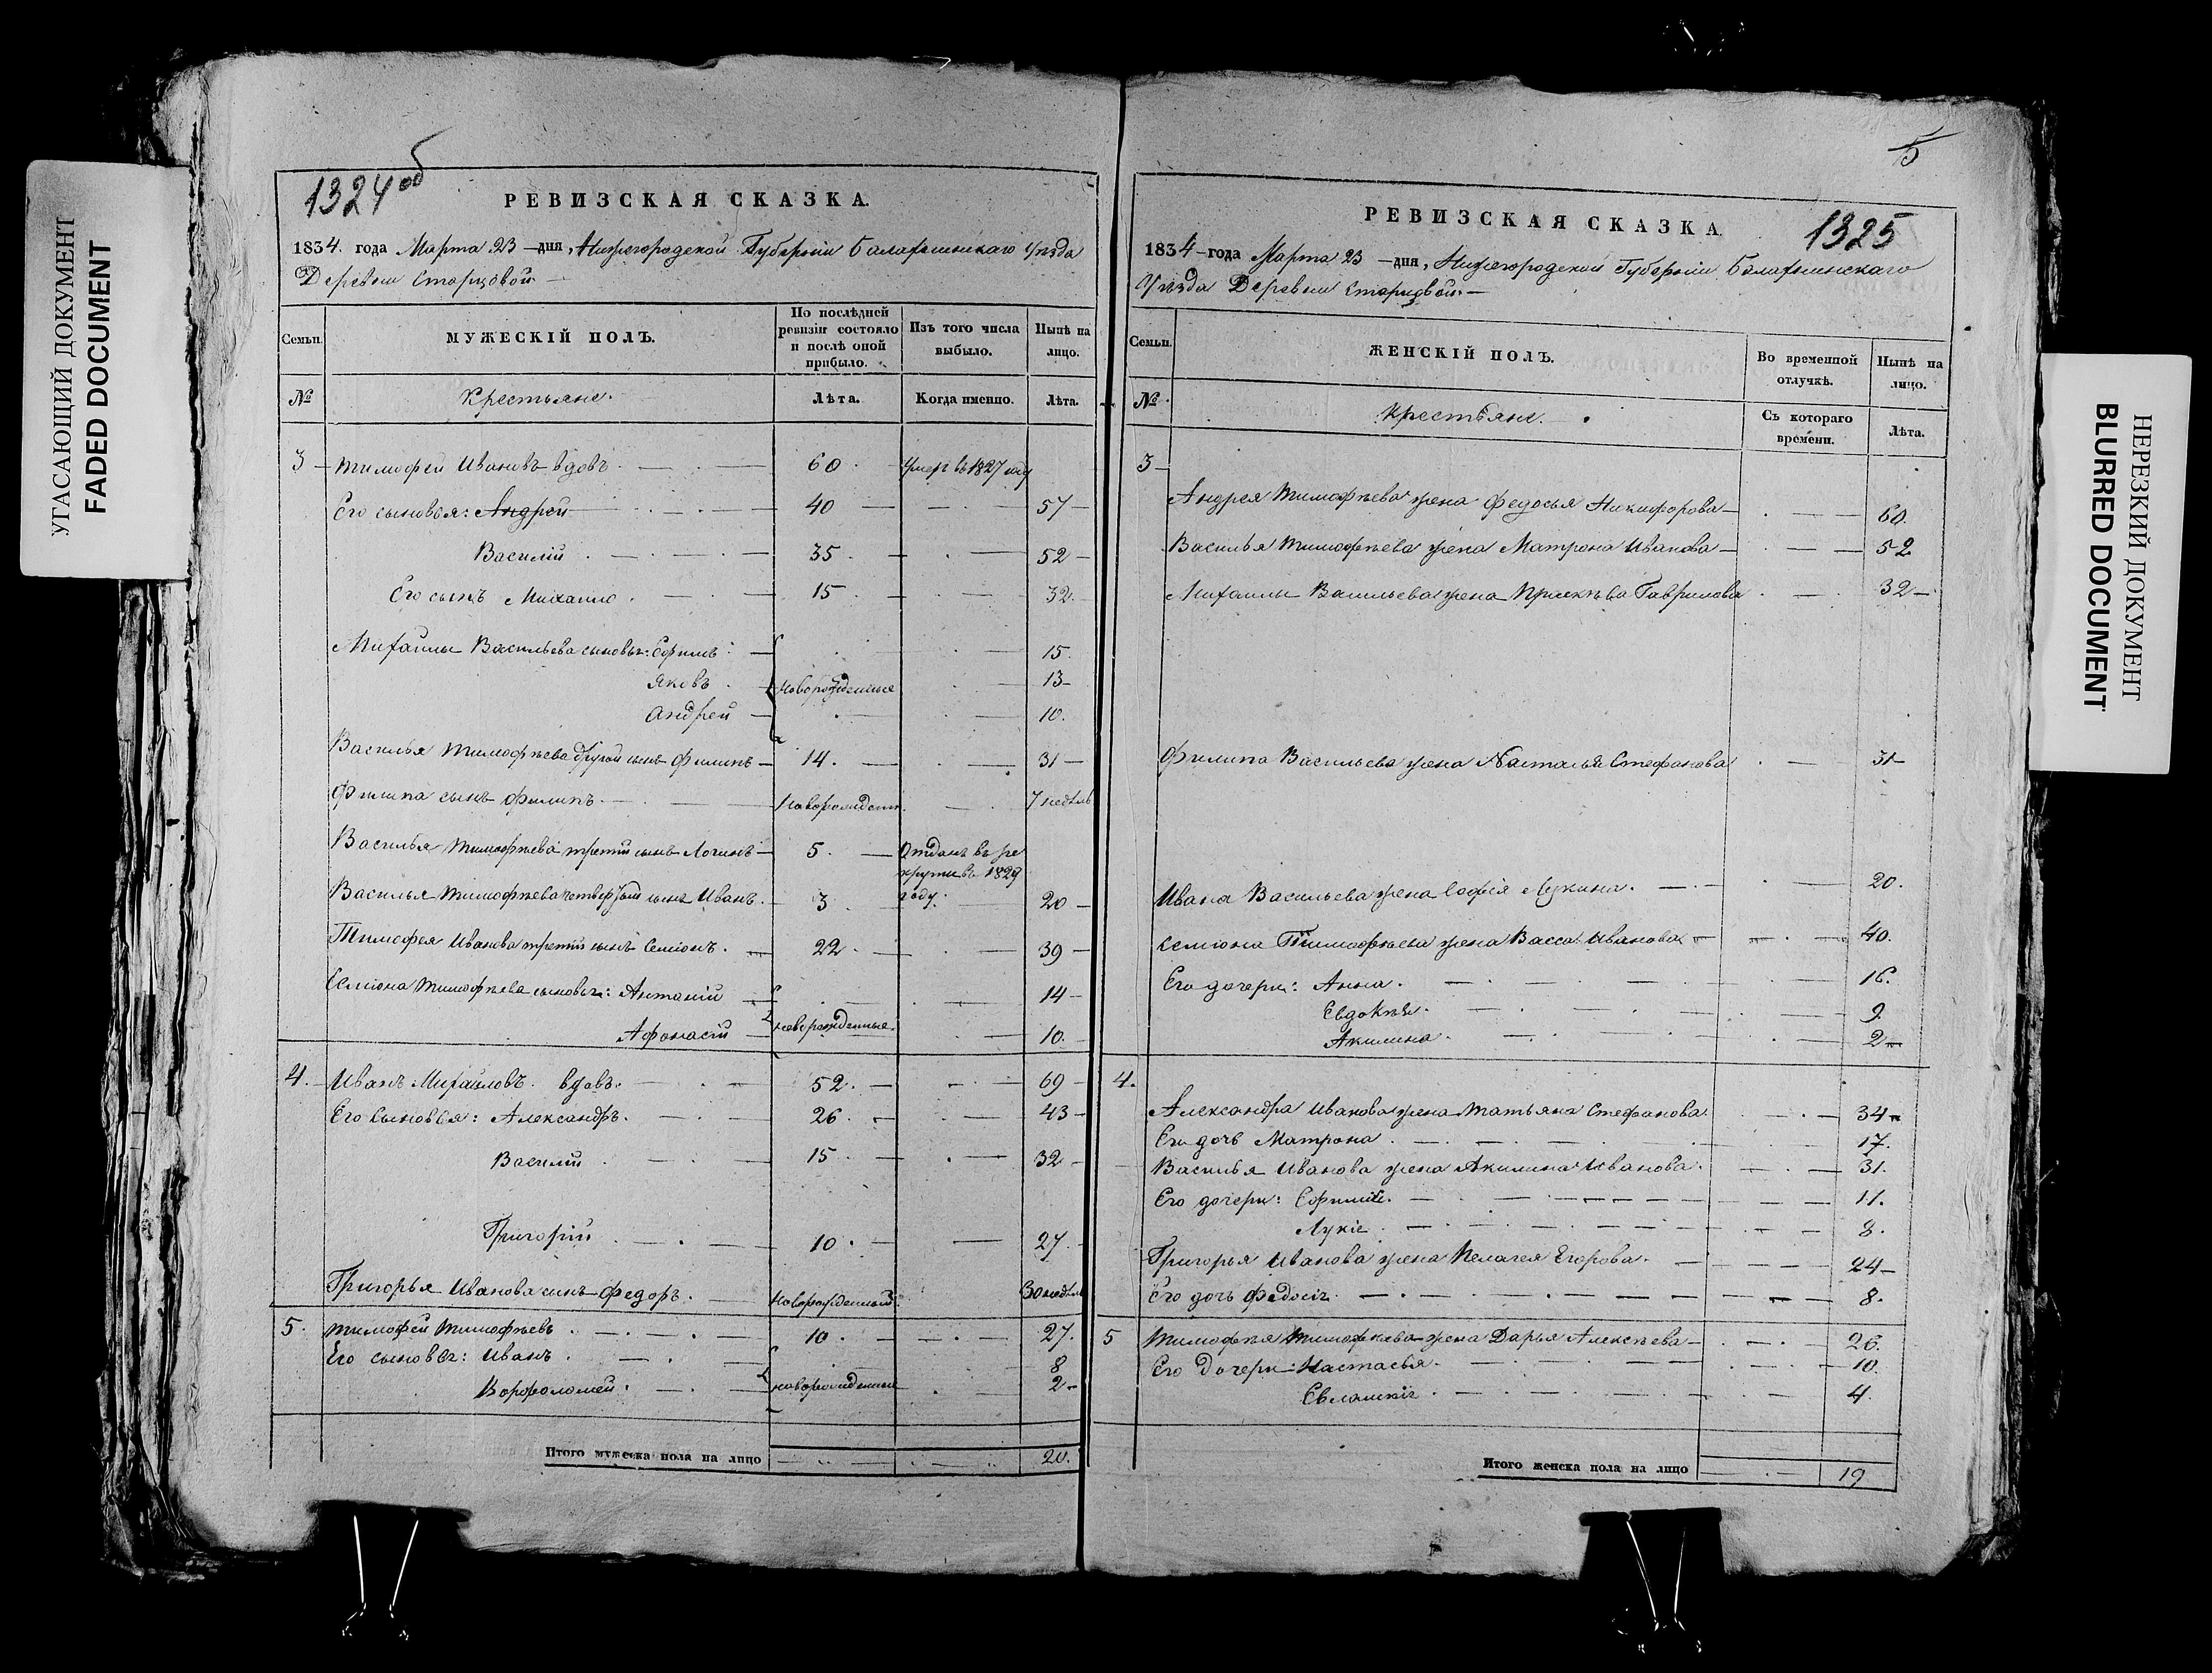 УГАСАЮЩИЙ ДОКУМЕНТ
FADED DOCUMENT
1324 об
РЕВИЗСКАЯ СКАЗКА.
1834. года Марта 23 — дня, Нижегородской Губернии Балахнинскаго Уѣзда
Деревни Старцовой —
Семьи.
МУЖЕСКІЙ ПОЛЪ.
По послѣдней ревизіи состояло и послѣ оной прибыло.
Изъ того числа выбыло.
Нынѣ на лицо.
№
Крестьяне.
Лѣта.
Когда именно.
Лѣта.
3 — Тимофей Ивановъ вдовъ. 60. Умеръ въ 1827 году
Его сыновья: Андрей 40 — 57 —
Василій 35. — 52 —
Его сынъ Михаило. 15 — 32.
Михаилы Васильева сыновья: Ефимъ 15.
Яковъ. новорожденные 13 —
Андрей — 10.
Василья Тимофѣева другой сынъ Филипъ — 14. — 31 —
Филипа сынъ Филипъ. Новорожден. 7 недѣль
Василья Тимофѣева третій сынъ Логинъ — 5. — Отданъ въ ре
крути въ 1829
году.
Василья Тимофѣева четвертой сынъ Иванъ. 3 20 —
Тимофея Иванова третій сынъ Семіонъ. 22 39 —
Семіона Тимофѣева сыновья: Антоній 14 —
Афонасій новорожденные. 10.
4. — Иванъ Михайловъ. вдовъ. 52. — 69
Его сыновья: Александръ. 26. — 43 —
Василій 15 — 32 —
Григорій 10. — 27.
Григорья Иванова сынъ Федоръ. Новорожденный 30 недѣль
5. Тимофей Тимофѣевъ. 10. — 27.
Его сыновья: Иванъ. 8
Ворфоломей. новорожденные 2 —
Итого мужеска пола на лицо 20.
5
РЕВИЗСКАЯ СКАЗКА.
1325
1834 — года Марта 23 — дня, Нижегородской Губерніи Балахнинскаго
Уѣзда Деревни Старцовой. —
Семьи.
ЖЕНСКІЙ ПОЛЪ.
Во временной отлучкѣ.
Нынѣ на лицо.
№.
Крестьяне.
Съ котораго времени.
Лѣта.
3 —
Андрея Тимофѣева жена Федосья Никифорова — 60.
Василья Тимофѣева жена Матрона Иванова — 52
Михаилы Васильева жена Прасковья Гаврилова 32 —
Филипа Васильева жена Настасья Стефанова 31 —
Ивана Васильева жена Софія Лукина. — 20.
Семіона Тимофѣева жена Васса Иванова 40.
Его дочери: Анна. 16.
Евдокѣя. 9.
Акилина. 2
4.
Александра Иванова жена Татьяна Стефанова 34
Его дочь Матрона. 17.
Василья Иванова жена Акилина Иванова. 31.
Его дочери: Ефимія. 11.
Лукія. 8.
Григорья Иванова жена Пелагея Егорова. 24 —
Его дочь Федосія. 8.
5 Тимофѣя Тимофѣева жена Дарья Алексѣева — 26.
Его дочери: Настасья. 10.
Евлампія. 4.
Итого женска пола на лицо 19
НЕРЕЗКИЙ ДОКУМЕНТ
BLURRED DOCUMENT